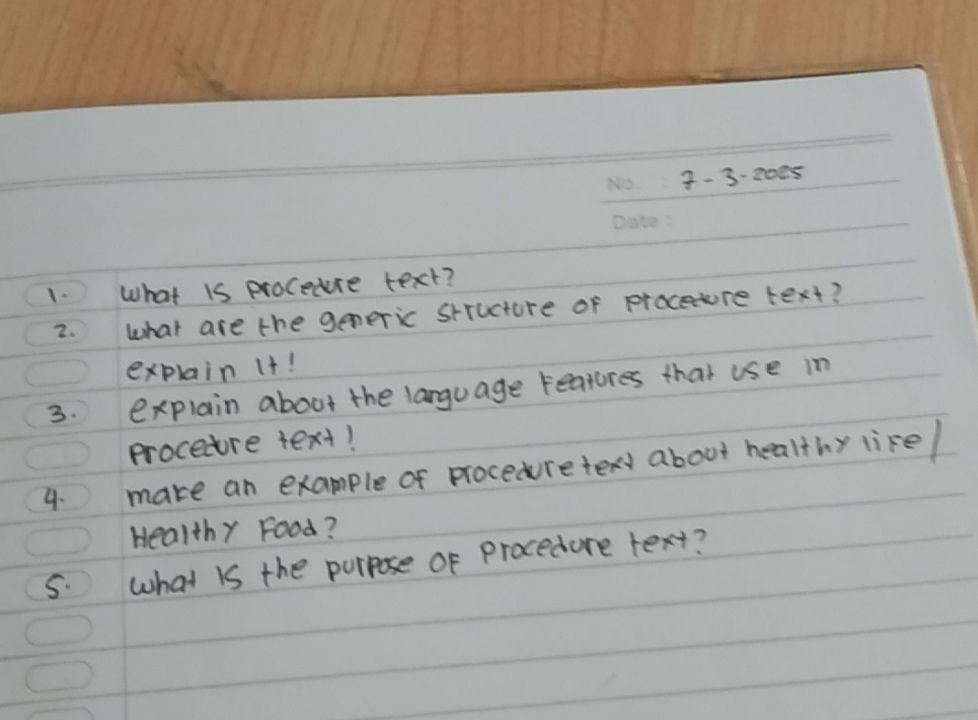 No. : 7-3-2025
Date :
1. what is procedure text?
2. what are the generic structure of procedure text?
explain it!
3. explain about the language features that use in
procedure text!
4. make an example of procedure text about healthy life/
Healthy Food?
5. what is the purpose of procedure text?